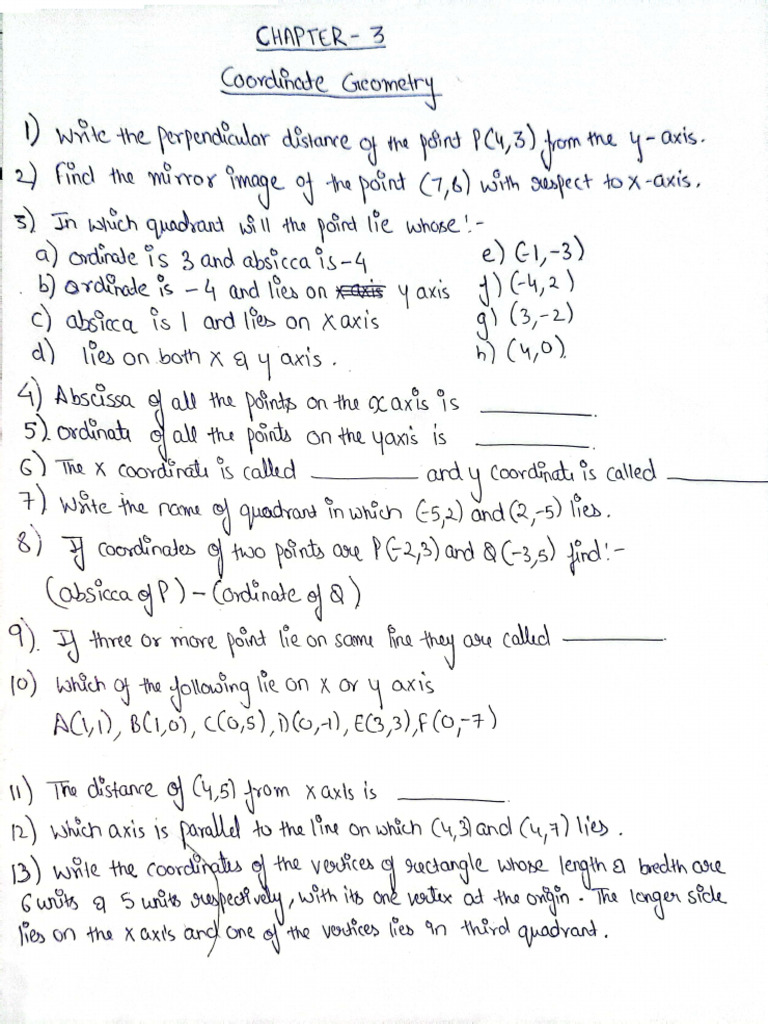 CHAPTER - 3
Coordinate Geometry
1) Write the perpendicular distance of the point P(4,3) from the y-axis.
2) Find the mirror image of the point (7,6) with respect to x-axis.
3) In which quadrant will the point lie whose:-
a) ordinate is 3 and absicca is -4
b) ordinate is -4 and lies on x axis y axis
c) absicca is 1 and lies on x axis
d) lies on both x & y axis.
e) (-1,-3)
f) (-4,2)
g) (3,-2)
h) (4,0).
4) Abscissa of all the points on the x axis is ________.
5) ordinate of all the points on the yaxis is ________.
6) The x coordinate is called ________ and y coordinate is called ________
7) Write the name of quadrant in which (-5,2) and (2,-5) lies.
8) If coordinates of two points are P(-2,3) and Q(-3,5) find:-
(absicca of P) - (ordinate of Q)
9). If three or more point lie on same line they are called ________.
10) Which of the following lie on x or y axis
A(1,1), B(1,0), C(0,5), D(0,-1), E(3,3), F(0,-7)
11) The distance of (4,5) from x axis is ________.
12) Which axis is parallel to the line on which (4,3) and (4,7) lies.
13) Write the coordinates of the vertices of rectangle whose length & bredth are
6 units & 5 units respectively, with its one vertex at the origin. The longer side
lies on the x axis and one of the vertices lies in third quadrant.